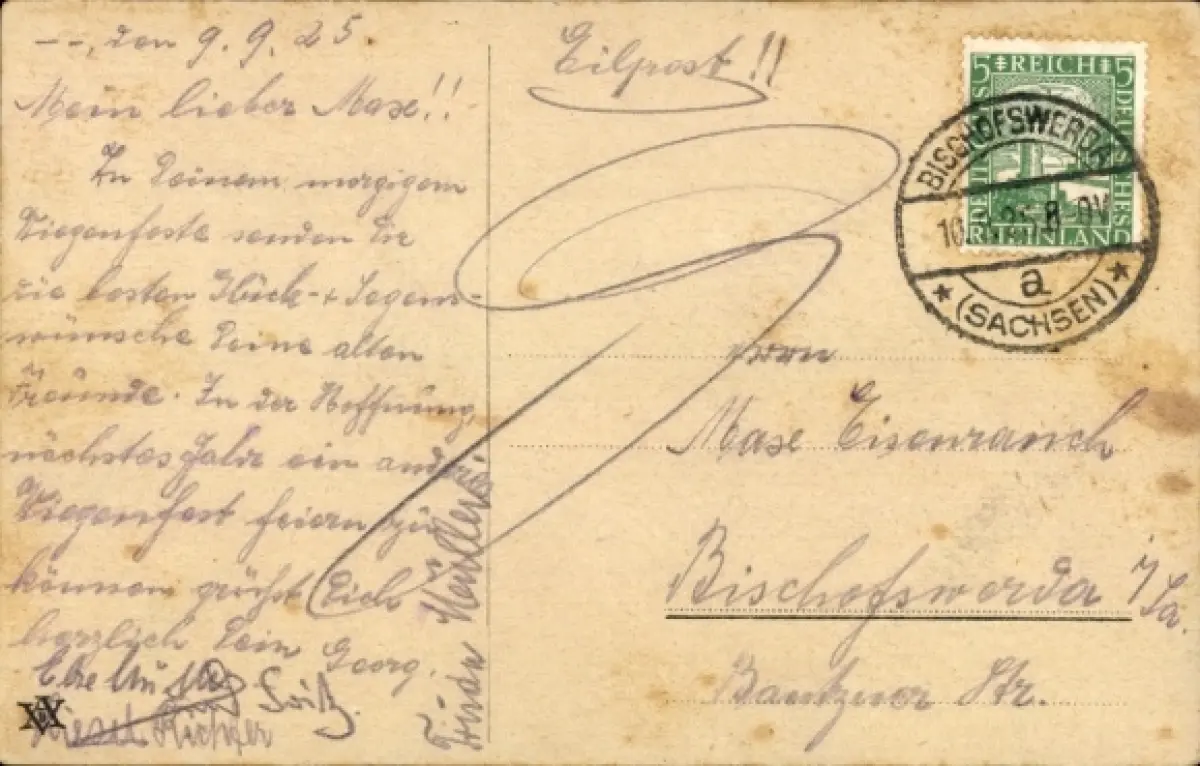 --, den 9. 9. 25.
Mein lieber Maxe!!
Zu Deinem morgigem
Wiegenfeste senden Dir
die besten Glück- + Segens-
wünsche Deine alten
Freunde. In der Hoffnung,
nächstes Jahr ein and.
Wiegenfest feiern zu
können grüßt Dich
herzlich Dein Georg.
Fritz.
Richter
Frida Müller
Eilpost!!
5 REICH 5
DEUTSCHES
RHEINLAND
BISCHOFSWERDA
10. 9. 25. 8-9V
a
* (SACHSEN) *
Herrn
Maxe Eisenranch
Bischofswerda i/Sa.
Bautzner Str.